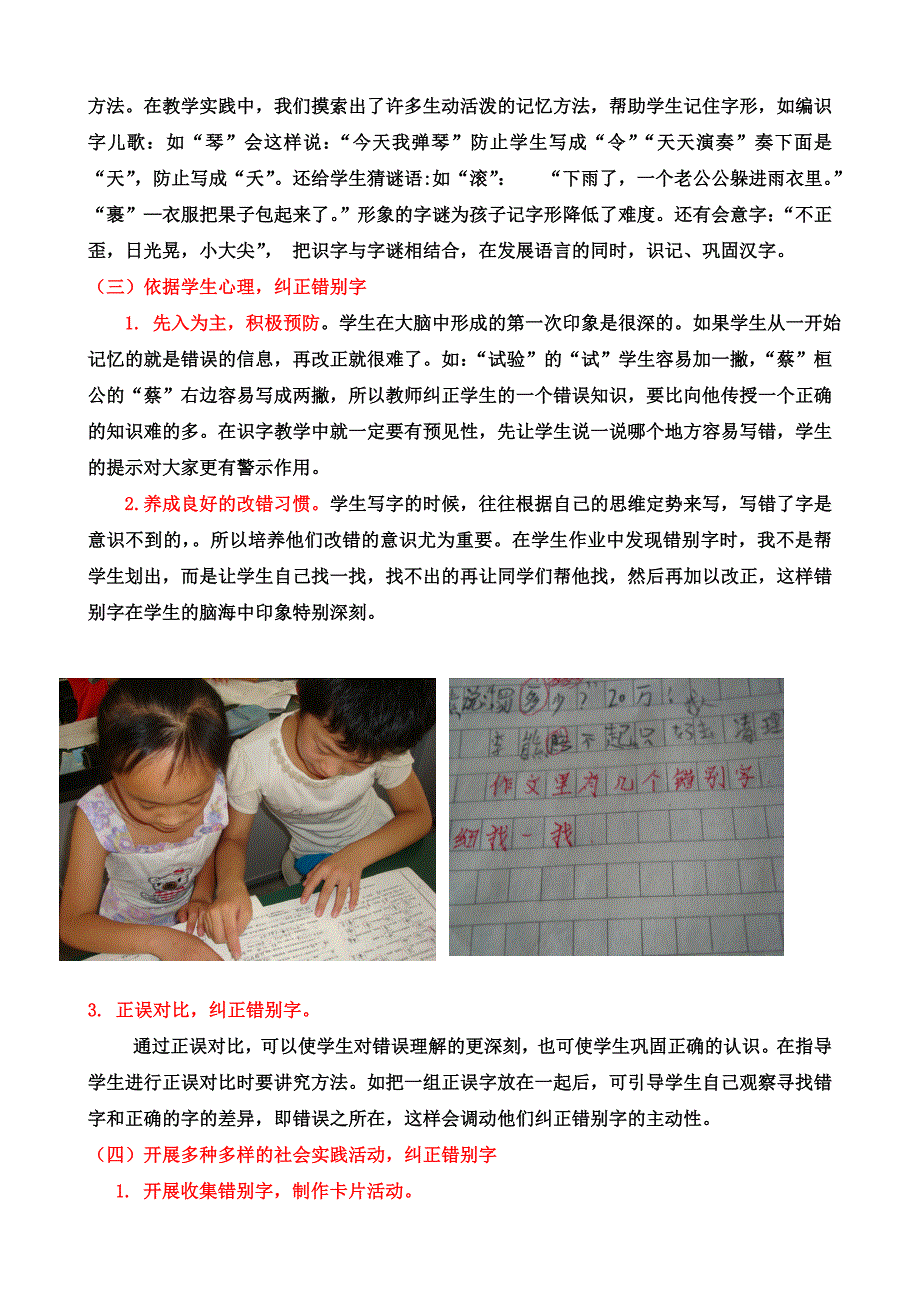 方法。在教学实践中，我们摸索出了许多生动活泼的记忆方法，帮助学生记住字形，如编识
字儿歌：如“琴”会这样说：“今天我弹琴”防止学生写成“令”“天天演奏”奏下面是
“天”，防止写成“夭”。还给学生猜谜语:如“滚”： “下雨了，一个老公公躲进雨衣里。”
“裹”—衣服把果子包起来了。”形象的字谜为孩子记字形降低了难度。还有会意字：“不正
歪，日光晃，小大尖”， 把识字与字谜相结合，在发展语言的同时，识记、巩固汉字。
（三）依据学生心理，纠正错别字
1. 先入为主，积极预防。学生在大脑中形成的第一次印象是很深的。如果学生从一开始
记忆的就是错误的信息，再改正就很难了。如：“试验”的“试”学生容易加一撇，“蔡”桓
公的“蔡”右边容易写成两撇，所以教师纠正学生的一个错误知识，要比向他传授一个正确
的知识难的多。在识字教学中就一定要有预见性，先让学生说一说哪个地方容易写错，学生
的提示对大家更有警示作用。
2.养成良好的改错习惯。学生写字的时候，往往根据自己的思维定势来写，写错了字是
意识不到的，。所以培养他们改错的意识尤为重要。在学生作业中发现错别字时，我不是帮
学生划出，而是让学生自己找一找，找不出的再让同学们帮他找，然后再加以改正，这样错
别字在学生的脑海中印象特别深刻。
多少？”20万！
能 不起 清理
作文里有几个错别字
细找一找
3. 正误对比，纠正错别字。
通过正误对比，可以使学生对错误理解的更深刻，也可使学生巩固正确的认识。在指导
学生进行正误对比时要讲究方法。如把一组正误字放在一起后，可引导学生自己观察寻找错
字和正确的字的差异，即错误之所在，这样会调动他们纠正错别字的主动性。
（四）开展多种多样的社会实践活动，纠正错别字
1. 开展收集错别字，制作卡片活动。